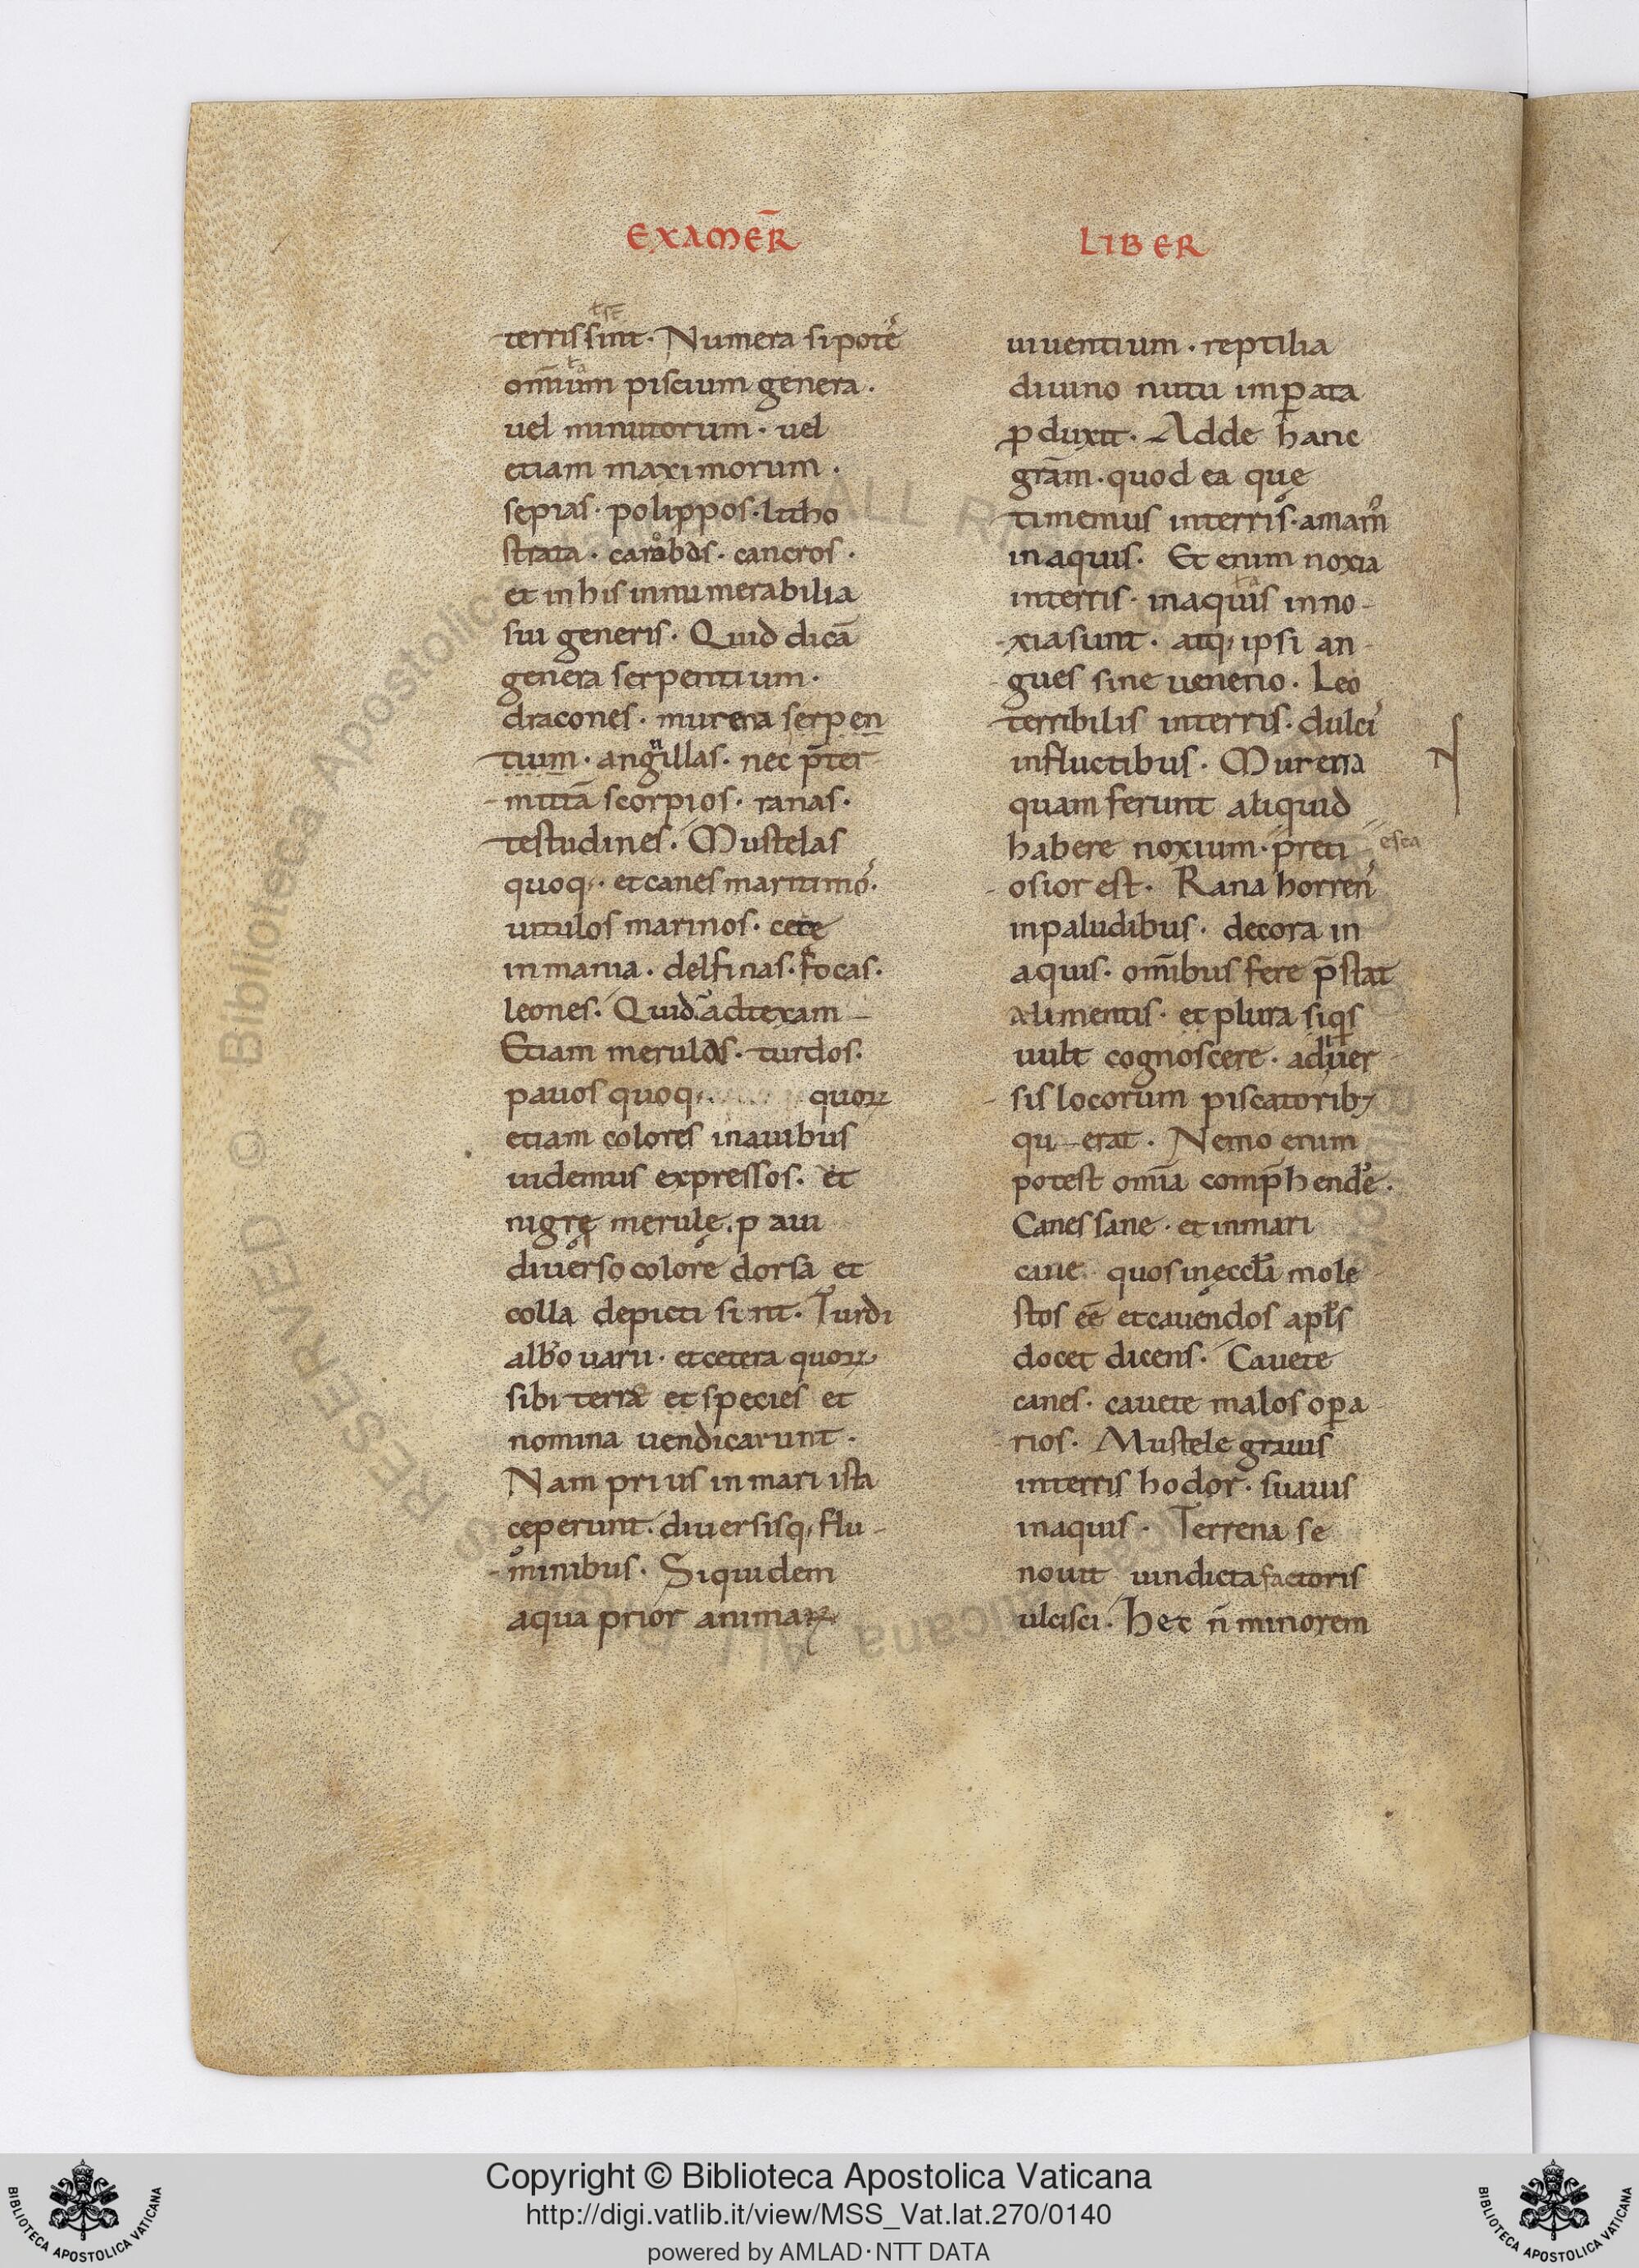 EXAMER̄
terris sint. Numera si poteˢ
om̄ium piscium genera.
uel minutorum. uel
etiam maximorum.
sepias. polippos. litho
strata. carabos. cancros.
et in his innumerabilia
sui generis. Quid dicā
genera serpentium.
dracones. murena serpen
tium. anguillas. nec p̄ter
mittā scorpios. ranas.
testudines. Mustelas
quoq;. et canes maritimoˢ.
uitulos marinos. cete
inmania. delfinas. focas.
leones. Quid adtexam
Etiam merulas. turdos.
pauos quoq; quoꝝ
etiam colores in auibus
uidemus expressos. et
nigrę merulę. paui
diuerso colore dorsa et
colla depicti sint. Turdi
albo uarii. et cetera quoꝝ
sibi terra et species et
nomina uendicarunt.
Nam prius in mari ista
ceperunt. diuersisq; flu-
minibus. Siquidem
aqua prior animaꝝ
LIBER
uiuentium. reptilia
diuino nutu imꝑata
ꝓduxit. Adde hanc
gram̄. quod ea quę
timemus in terris. amamˀ
in aquis. Et enim noxia
in terris. in aquis inno-
xia sunt. atq; ipsi an-
gues sine ueneno. Leo
terribilis in terris. dulciˢ
in fluctibus. Murena
quam ferunt aliquid
habere noxium. preti
esca
osior est. Rana horrenˢ
in paludibus. decora in
aquis. om̄ibus fere p̄stat
alimentis. et plura siqͥs
uult cognoscere. a diuer
sis locorum piscatorib;
qu erat. Nemo enim
potest om̄ia comp̄hendeˀ.
Canes sane. et in mari
caue quos in ęccl̄a mole
stos eē et cauendos apl̄s
docet dicens. Cauete
canes. cauete malos oꝑa
rios. Mustele grauis
in terris hodor. suauis
in aquis. Terrena se
nouit uindicta factoris
ulcisci. Hec n̄ minorem
Copyright © Biblioteca Apostolica Vaticana
http://digi.vatlib.it/view/MSS_Vat.lat.270/0140
powered by AMLAD·NTT DATA
BIBLIOTECA APOSTOLICA VATICANA
BIBLIOTECA APOSTOLICA VATICANA